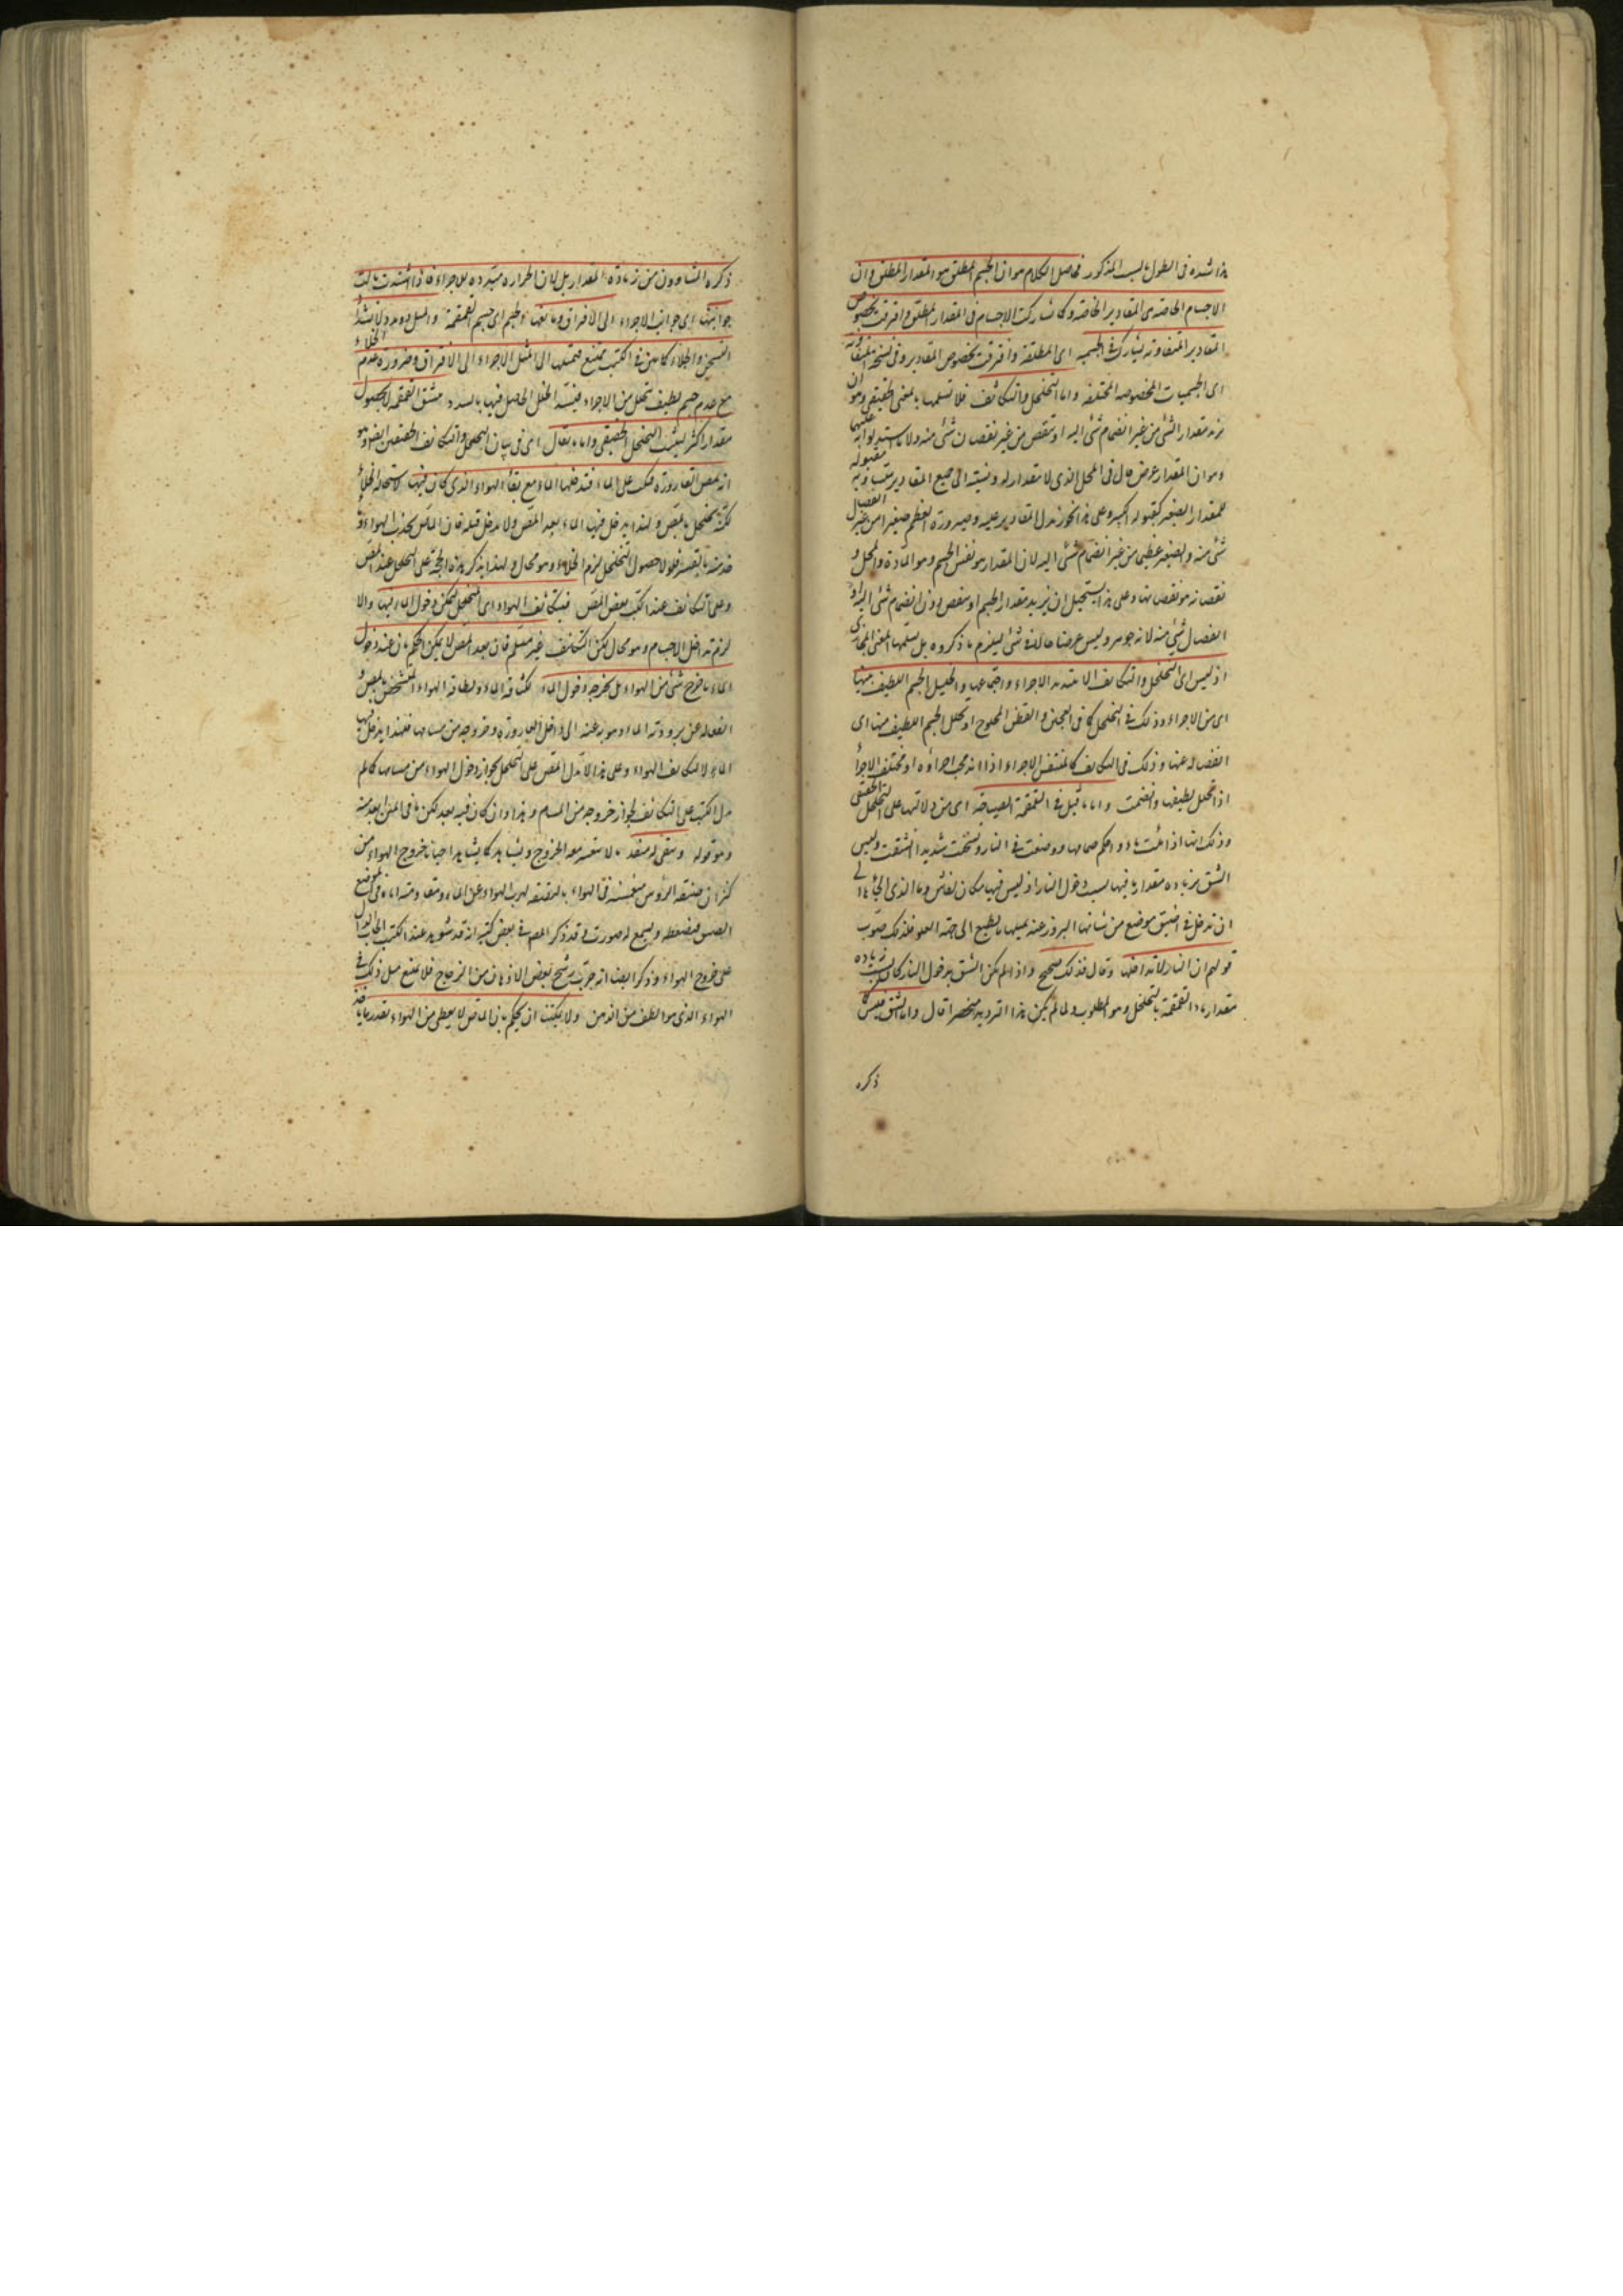 هذا شدة فى الطول بالسبب المذكور فحاصل الكلام هو ان الجسم المطلق هو المقدار المطلق وان
الاجسام الخاصة هى المقادير الخاصة وكما تشاركت الاجسام فى المقدار المطلق وافترقت بخصوص
المقادير المتفاوتة تشارك فى الجسمية اى المطلقة وافترقت بخصوص المقادير وفى نسخة المتفاوتة
اى الجسميات المخصوصة المختلفة واما التخلخل والتكاثف فلا نسلمها بالمعنى الحقيقى وهو ان
يزيد مقدار الشئ من غير انضمام شئ اليه او ينقص من غير نقصان شئ منه ولا ما يستدلوا به عليهما
وهو ان المقدار عرض حال فى المحل الذى لا مقدار له ونسبته الى جميع المقادير متساوية مقبولة
للمقدار الصغير كقبوله الكبير وعلى هذا يجوز تبدل المقادير عليه وصيرورة العظيم صغيرا من غير انفصال
شئ منه والصغير عظيما من غير انضمام شئ اليه لان المقدار هو نفس الجسم وهو المادة والمحل و
نقصانه هو نقصانها وعلى هذا يستحيل ان يزيد مقدار الجسم او ينقص دون انضمام شئ اليه او
انفصال شئ منه لانه جوهر وليس عرضا حالا فى شئ ليلزم ما ذكروه بل نسلمها بالمعنى المجازى
اذ ليس اى التخلخل والتكاثف الا بتبدد الاجزاء واجتماعها وتخلل الجسم اللطيف بينها
اى بين الاجزاء وذلك فى التخلخل كما فى العجين والقطن المحلوج او تحلل الجسم اللطيف منها اى
انفصاله عنها وذلك فى التكاثف كالمنتفش الاجزاء اذا اندمجت اجزاؤه او مختلف الاجزاء
اذا تحلل لطيفها وانضمت واما ما قيل فى القمقمة الصياحة اى من دلالتها على التخلخل الحقيقى
وذلك انها اذا ملئت ماء واحكم صمامها ووضعت فى النار وتسخنت شديدا انشقت وليس
الشق من زيادة مقدار ما فيها بسبب دخول النار اذ ليس فيها مكان لغاش وما الذى الجأها الى
ان تدخل فى اضيق موضع من شانها البروز عنه بميلها بالطبع الى جهة العلو فذلك صوب
قولهم ان النار لا تداخلها وقال فذلك صحيح واذا لم يكن الشق بدخول النار كان بسبب زيادة
مقدار ماء القمقمة بالتخلخل وهو المطلوب ولما لم يكن هذا الترديد منحصرا قال واما الشق فليس كما
ذكره
ذكره المشاؤون من زيادة المقدار بل لان الحرارة مبددة للاجزاء فاذا اشتدت مالت
جوانبها اى جوانب الاجزاء الى الافتراق ومانعها الجسم اى جسم القمقمة والميل ذو مدد لاشتداد
التسخن والخلاء كما بين فى الكتب ممتنع فبميلها الى الميل الاجزاء الى الافتراق وضرورة عدم الخلاء
مع عدم جسم لطيف تخلل بين الاجزاء فيسد الخلل الحاصل فيها بالتبدد ينشق القمقمة لا بحصول
مقدار اكثر ليثبت التخلخل الحقيقى واما ما يقال اى فى بيان التخلخل والتكاثف الحقيقيين ايضا وهو
انه تمص القارورة فتكب على الماء فتدخلها الماء مع بقاء الهواء الذى كان فيها لاستحالة الخلاء
لكنه تخلخل بالمص ولهذا يدخل فيها الماء بعد المص ولا يدخل قبله فان الماص يجذب الهواء و
خدمته بالقسر فلولا حصول التخلخل لزم الخلاء وهو محال ولهذا يذكر هذه الحجة على التخلخل عند المص
وعلى تكاثف عند الكب بعض المص فيتكاثف الهواء اى المتخلخل ليمكن دخول الماء اليها والا
لزم تداخل الاجسام وهو محال لكن التكاثف غير مسلم فان بعد المص لا يمكن الحكم بان عند دخول
الماء ما خرج شئ من الهواء بل يخرجه دخول الماء لكثافة الماء ولطافة الهواء المتسخن بالمص و
انفعاله عن برودة الماء وهربه عنه الى داخل القارورة وخروجه من مسامها فلهذا يدخل فيها
الماء لا لتكاثف الهواء وعلى هذا لا تدل المص على التخلخل لجواز دخول الهواء من مسامها كما لم
يدل الكب على التكاثف لجواز خروجه من المسام وهذا وان كان فيه بعد لكن ما فى المتن ابعد منه
وهو قوله ويبقى له منفذ ما لا يتعسر معه الخروج ويشاهد كما يشاهد احيانا خروج الهواء من
كيزان ضيقة الرؤس منغمسة فى الهواء بالبقبقة لهرب الهواء عن الماء ومقاومته اياه فى الموضع
الضيق فيضغطه ويسمع له صوت وقد ذكر المص فى بعض كتبه انه قد شوهد عند الكب الحباب الدال
على خروج الهواء وذكر ايضا انه جرب ترشح بعض الادهان من الزجاج فلا يمتنع مثل ذلك فى
الهواء الذى هو الطف من الدهن ولا يمكننا ان نحكم بان الماص لا يعطى من الهواء بقدر ما ياخذ